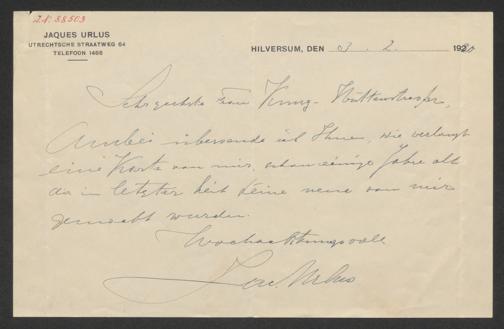 I.N. 88503
JAQUES URLUS
UTRECHTSCHE STRAATWEG 64
TELEFOON 1468
HILVERSUM, DEN 3. 2. 1930
Sehr geehrte Frau
Anbei übersende ich Ihnen, wie verlangt
eine Karte von mir, schon einige Jahre alt
da in letzter Zeit keine neue von mir
gemacht wurden.
Hochachtungsvoll
Jac. Urlus